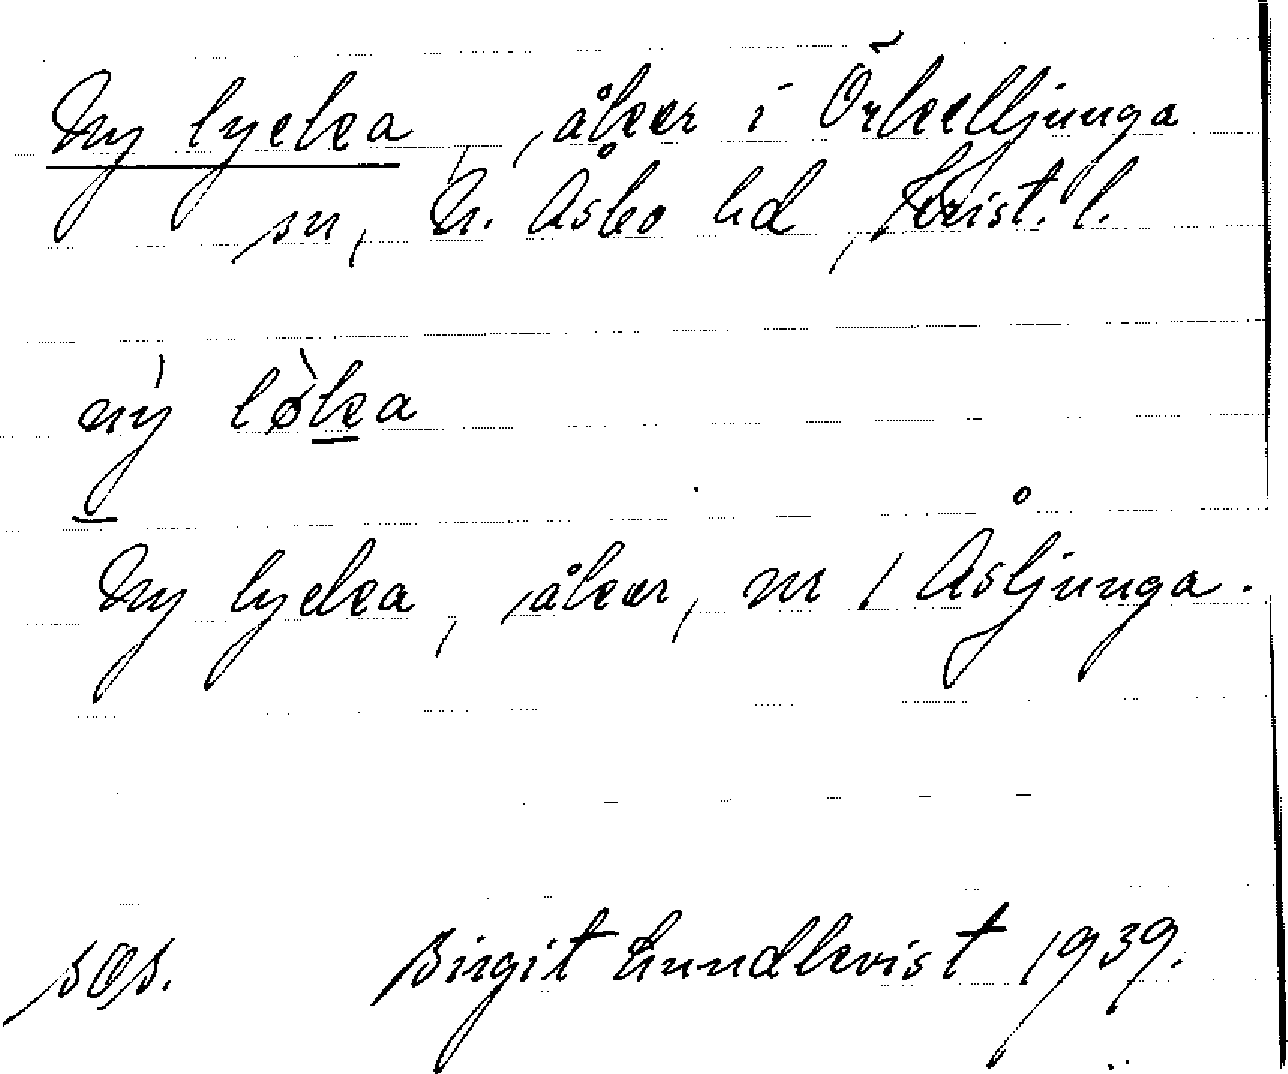 Ny lycka, åker i Örkelljunga
sn, N. Åsbo hd, Krist. l.
ný̱ lø̀ḵa
Ny lycka, åker, nr 1 Åsljunga.
Birgit Lundkvist 1939.